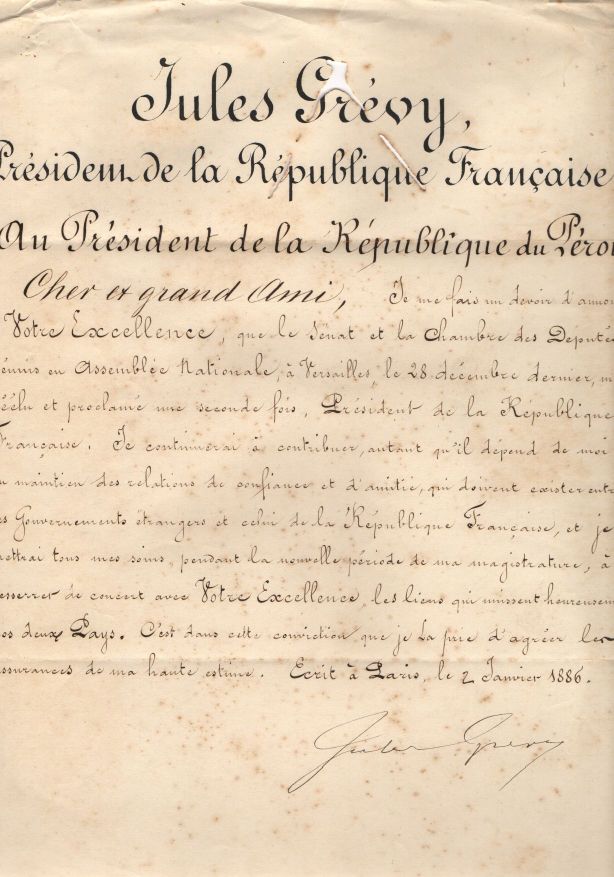 Jules Grévy,
Président de la République Française
Au Président de la République du Pérou
Cher et grand Ami, Je me fais un devoir d'annon
Votre Excellence, que le Sénat et la Chambre des Députés
éunis en Assemblée Nationale, à Versailles, le 28 décembre dernier, m
éélu et proclamé une seconde fois, Président de la République
Française. Je continuerai à contribuer, autant qu'il dépend de moi
u maintien des relations de confiance et d'amitié, qui doivent exister entr
es Gouvernements étrangers et celui de la République Française, et je
mettrai tous mes soins, pendant la nouvelle période de ma magistrature, à
esserrer de concert avec Votre Excellence, les liens qui unissent heureusem
os deux Pays. C'est dans cette conviction que je La prie d'agréer les
assurances de ma haute estime. Ecrit à Paris, le 2 Janvier 1886.
Jules Grévy